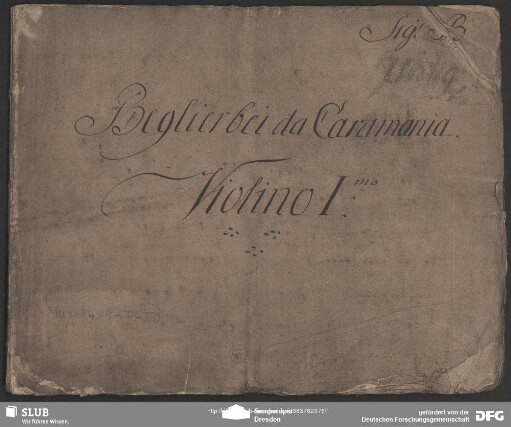 Sig.r B
Beglierbei da Caramania.
Violino I.mo
SLUB
Wir führen Wissen.
Dresden
gefördert von der
Deutschen Forschungsgemeinschaft
DFG